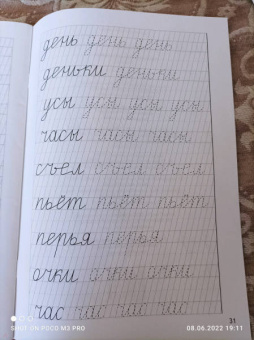 день день день
деньки деньки
усы усы усы усы
часы часы часы
съел съел съел
пьёт пьёт пьёт
перья перья
очки очки очки
час час час час
31
SHOT ON POCO M3 PRO
08.06.2022 19:11